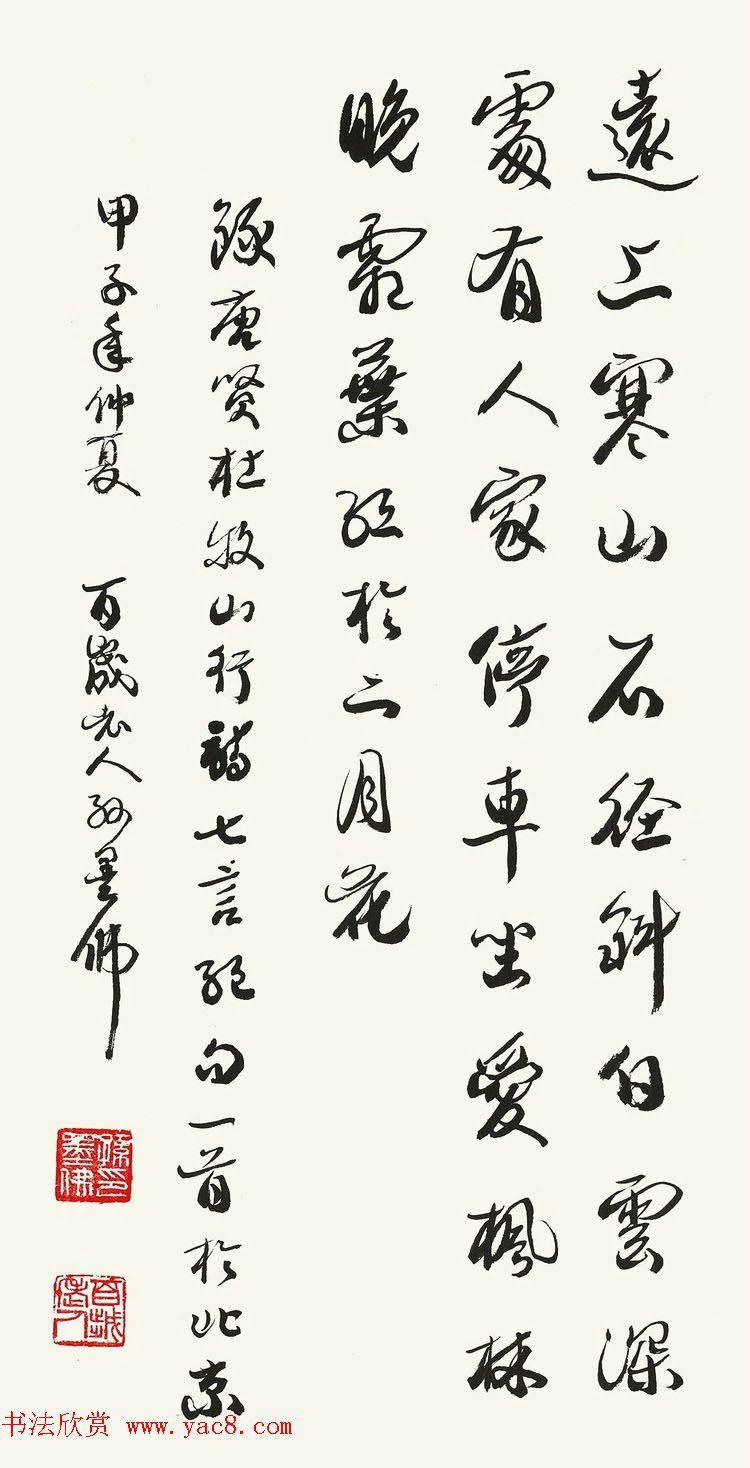 遠上寒山石径斜白雲深
處有人家停車坐愛楓林
晚霜葉红於二月花
錄唐賢杜牧山行詩七言絕句一首於北京
甲子年仲夏 百歲老人孙墨佛
孫墨佛印
百歲老人
书法欣赏 www.yac8.com